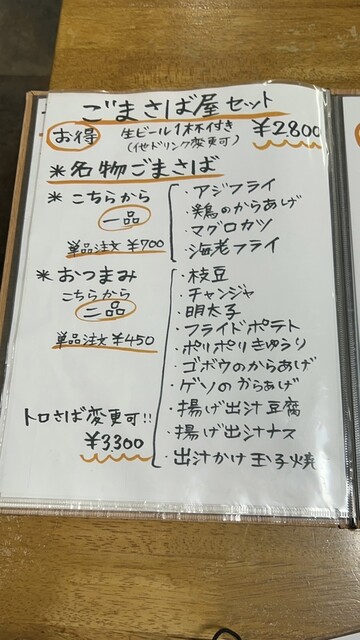 ごまさば屋セット
お得 生ビール1杯付き ¥2800
(他ドリンク変更可)
*名物ごまさば
*こちらから
一品
単品注文 ¥700
・アジフライ
・鶏のからあげ
・マグロカツ
・海老フライ
*おつまみ
こちらから
二品
単品注文 ¥450
・枝豆
・チャンジャ
・明太子
・フライドポテト
・ポリポリきゅうり
・ゴボウのからあげ
・ゲソのからあげ
・揚げ出汁豆腐
・揚げ出汁ナス
・出汁かけ玉子焼
トロさば変更可!!
¥3300